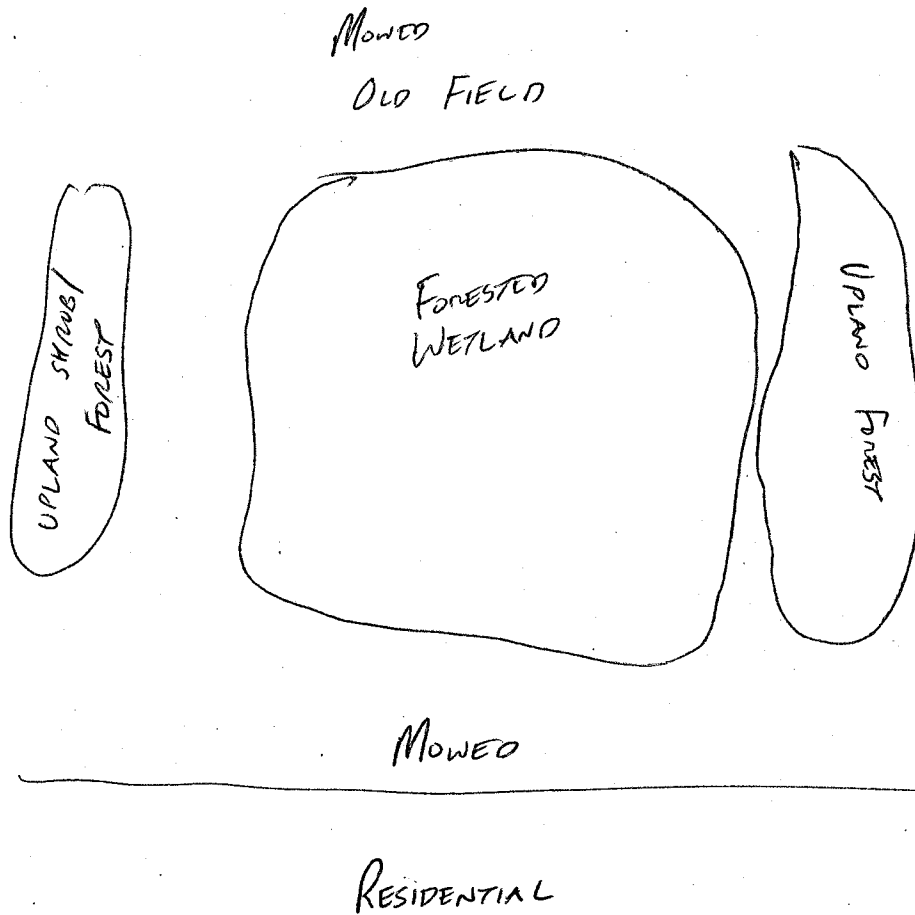 MOWED
OLD FIELD
UPLAND SHRUB/
FOREST
FORESTED
WETLAND
UPLAND FOREST
MOWED
RESIDENTIAL